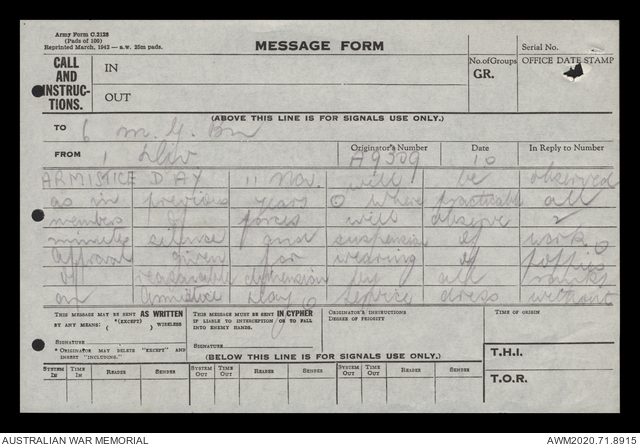 Army Form C.2128
(Pads of 100)
Reprinted March, 1942—a.w. 25m pads.
MESSAGE FORM
Serial No.
CALL AND INSTRUCTIONS.
IN
OUT
No. of Groups
GR.
OFFICE DATE STAMP
(ABOVE THIS LINE IS FOR SIGNALS USE ONLY.)
TO 6 M.G. Bn
FROM 1 Div
Originator's Number A9309
Date 10
In Reply to Number
ARMISTICE DAY 11 Nov. will be observed
as in previous years o where practicable all
members of forces will observe 2
minutes silence and suspension of work o
Approval given for wearing of poppies
of reasonable dimension by all ranks
on Armistice Day o service dress without
THIS MESSAGE MAY BE SENT AS WRITTEN
BY ANY MEANS. (EXCEPT) ( ) WIRELESS
SIGNATURE
* ORIGINATOR MAY DELETE "EXCEPT" AND
INSERT "INCLUDING."
THIS MESSAGE MUST BE SENT IN CYPHER
IF LIABLE TO INTERCEPTION OR TO FALL
INTO ENEMY HANDS.
SIGNATURE
ORIGINATOR'S INSTRUCTIONS
DEGREE OF PRIORITY
TIME OF ORIGIN
(BELOW THIS LINE IS FOR SIGNALS USE ONLY.)
T.H.I.
T.O.R.
SYSTEM IN TIME IN READER SENDER SYSTEM OUT TIME OUT READER SENDER SYSTEM OUT TIME OUT READER SENDER
AUSTRALIAN WAR MEMORIAL
AWM2020.71.8915